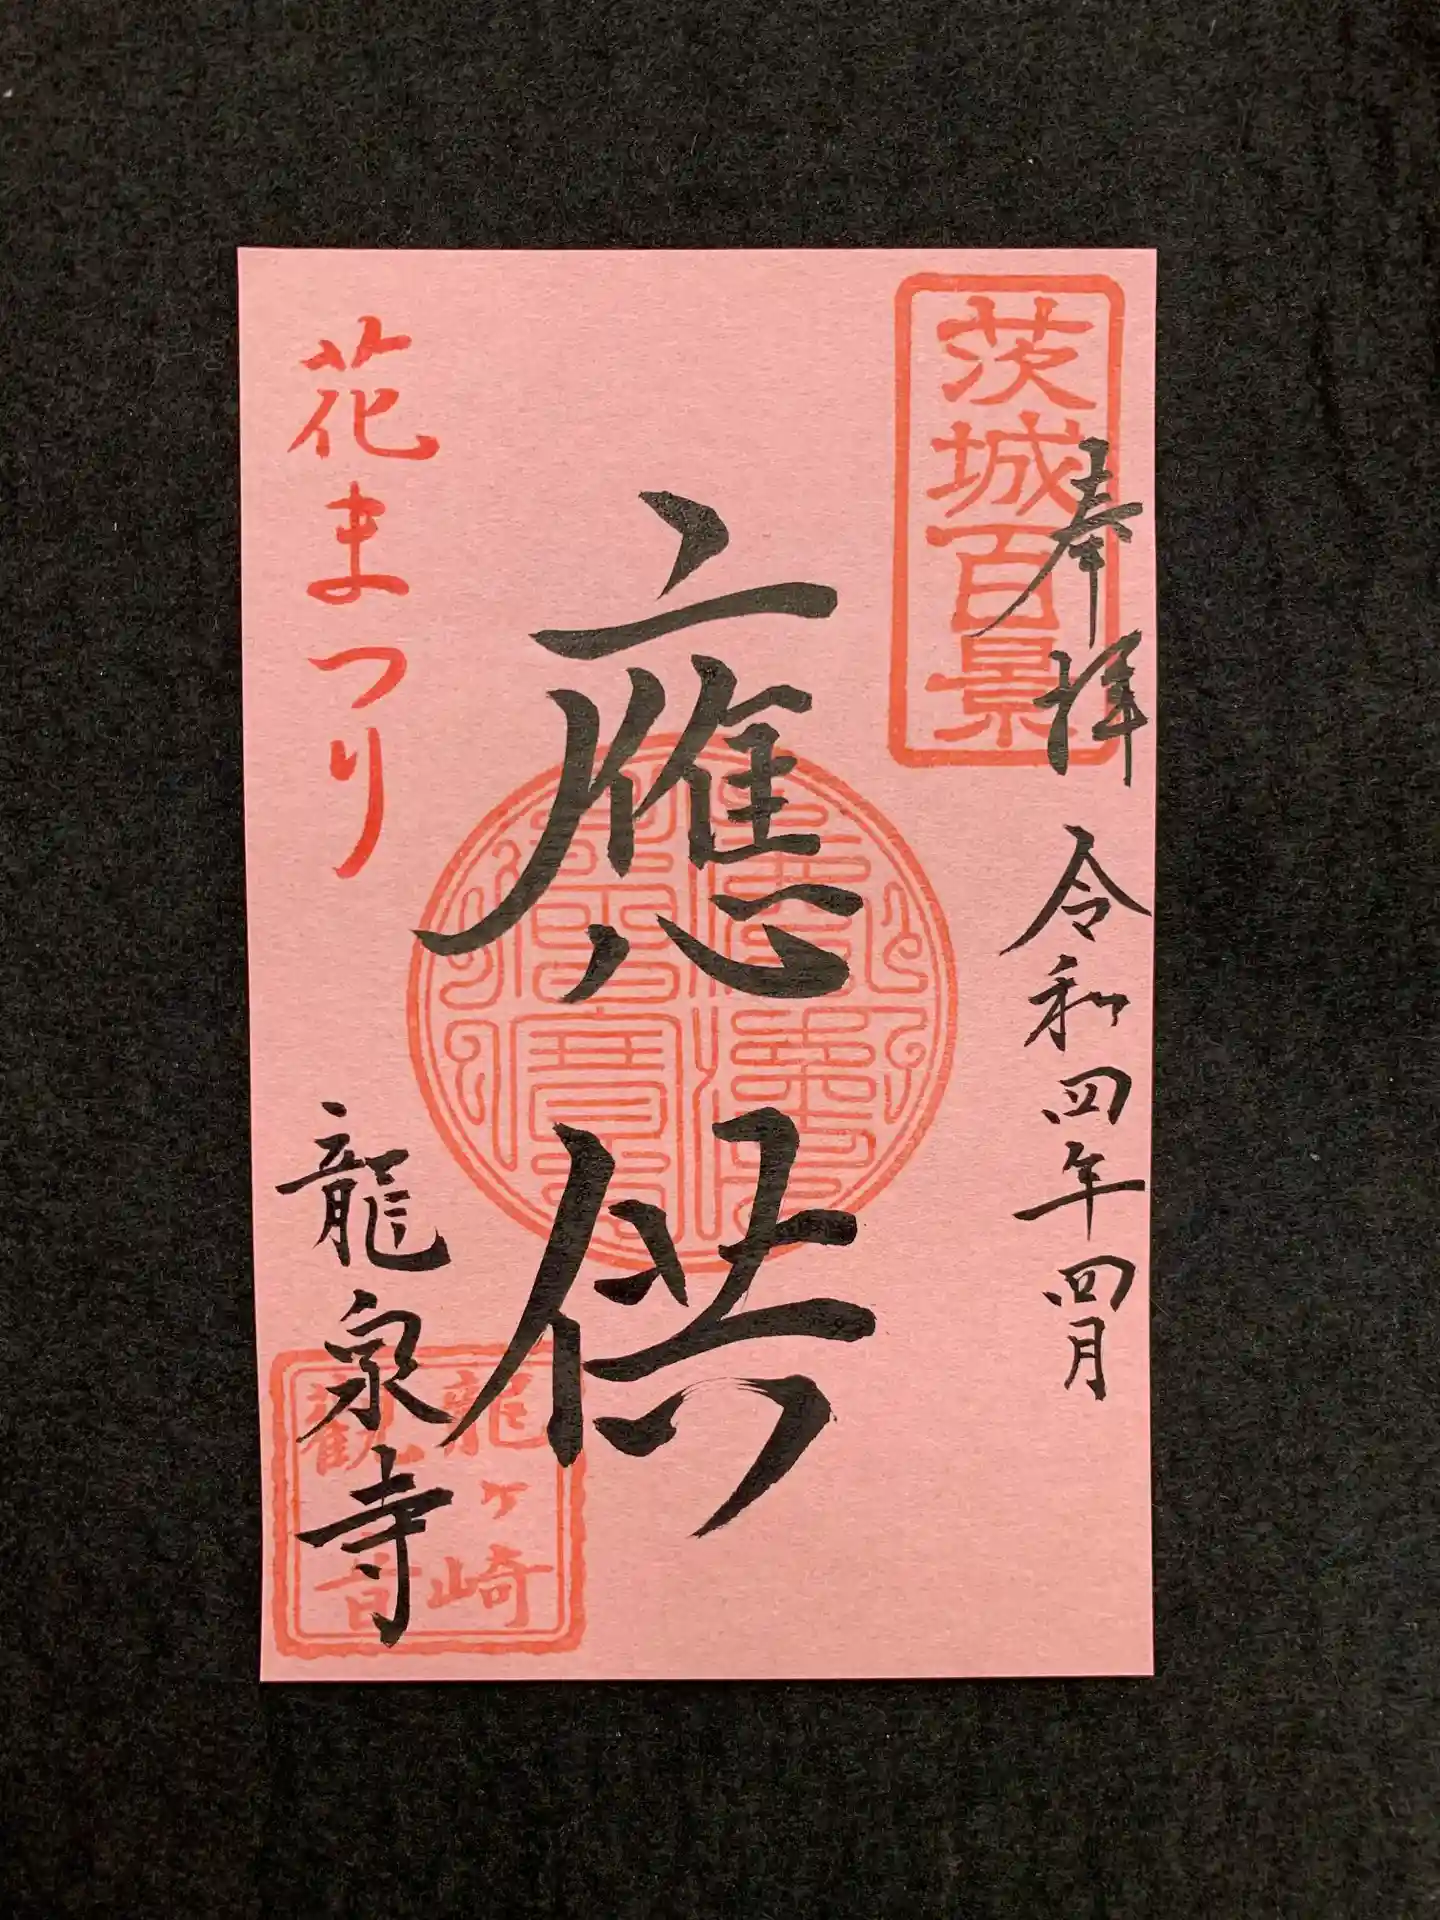 茨城百景
奉拝
令和四年四月
應供
花まつり
龍泉寺
龍ヶ崎
観音